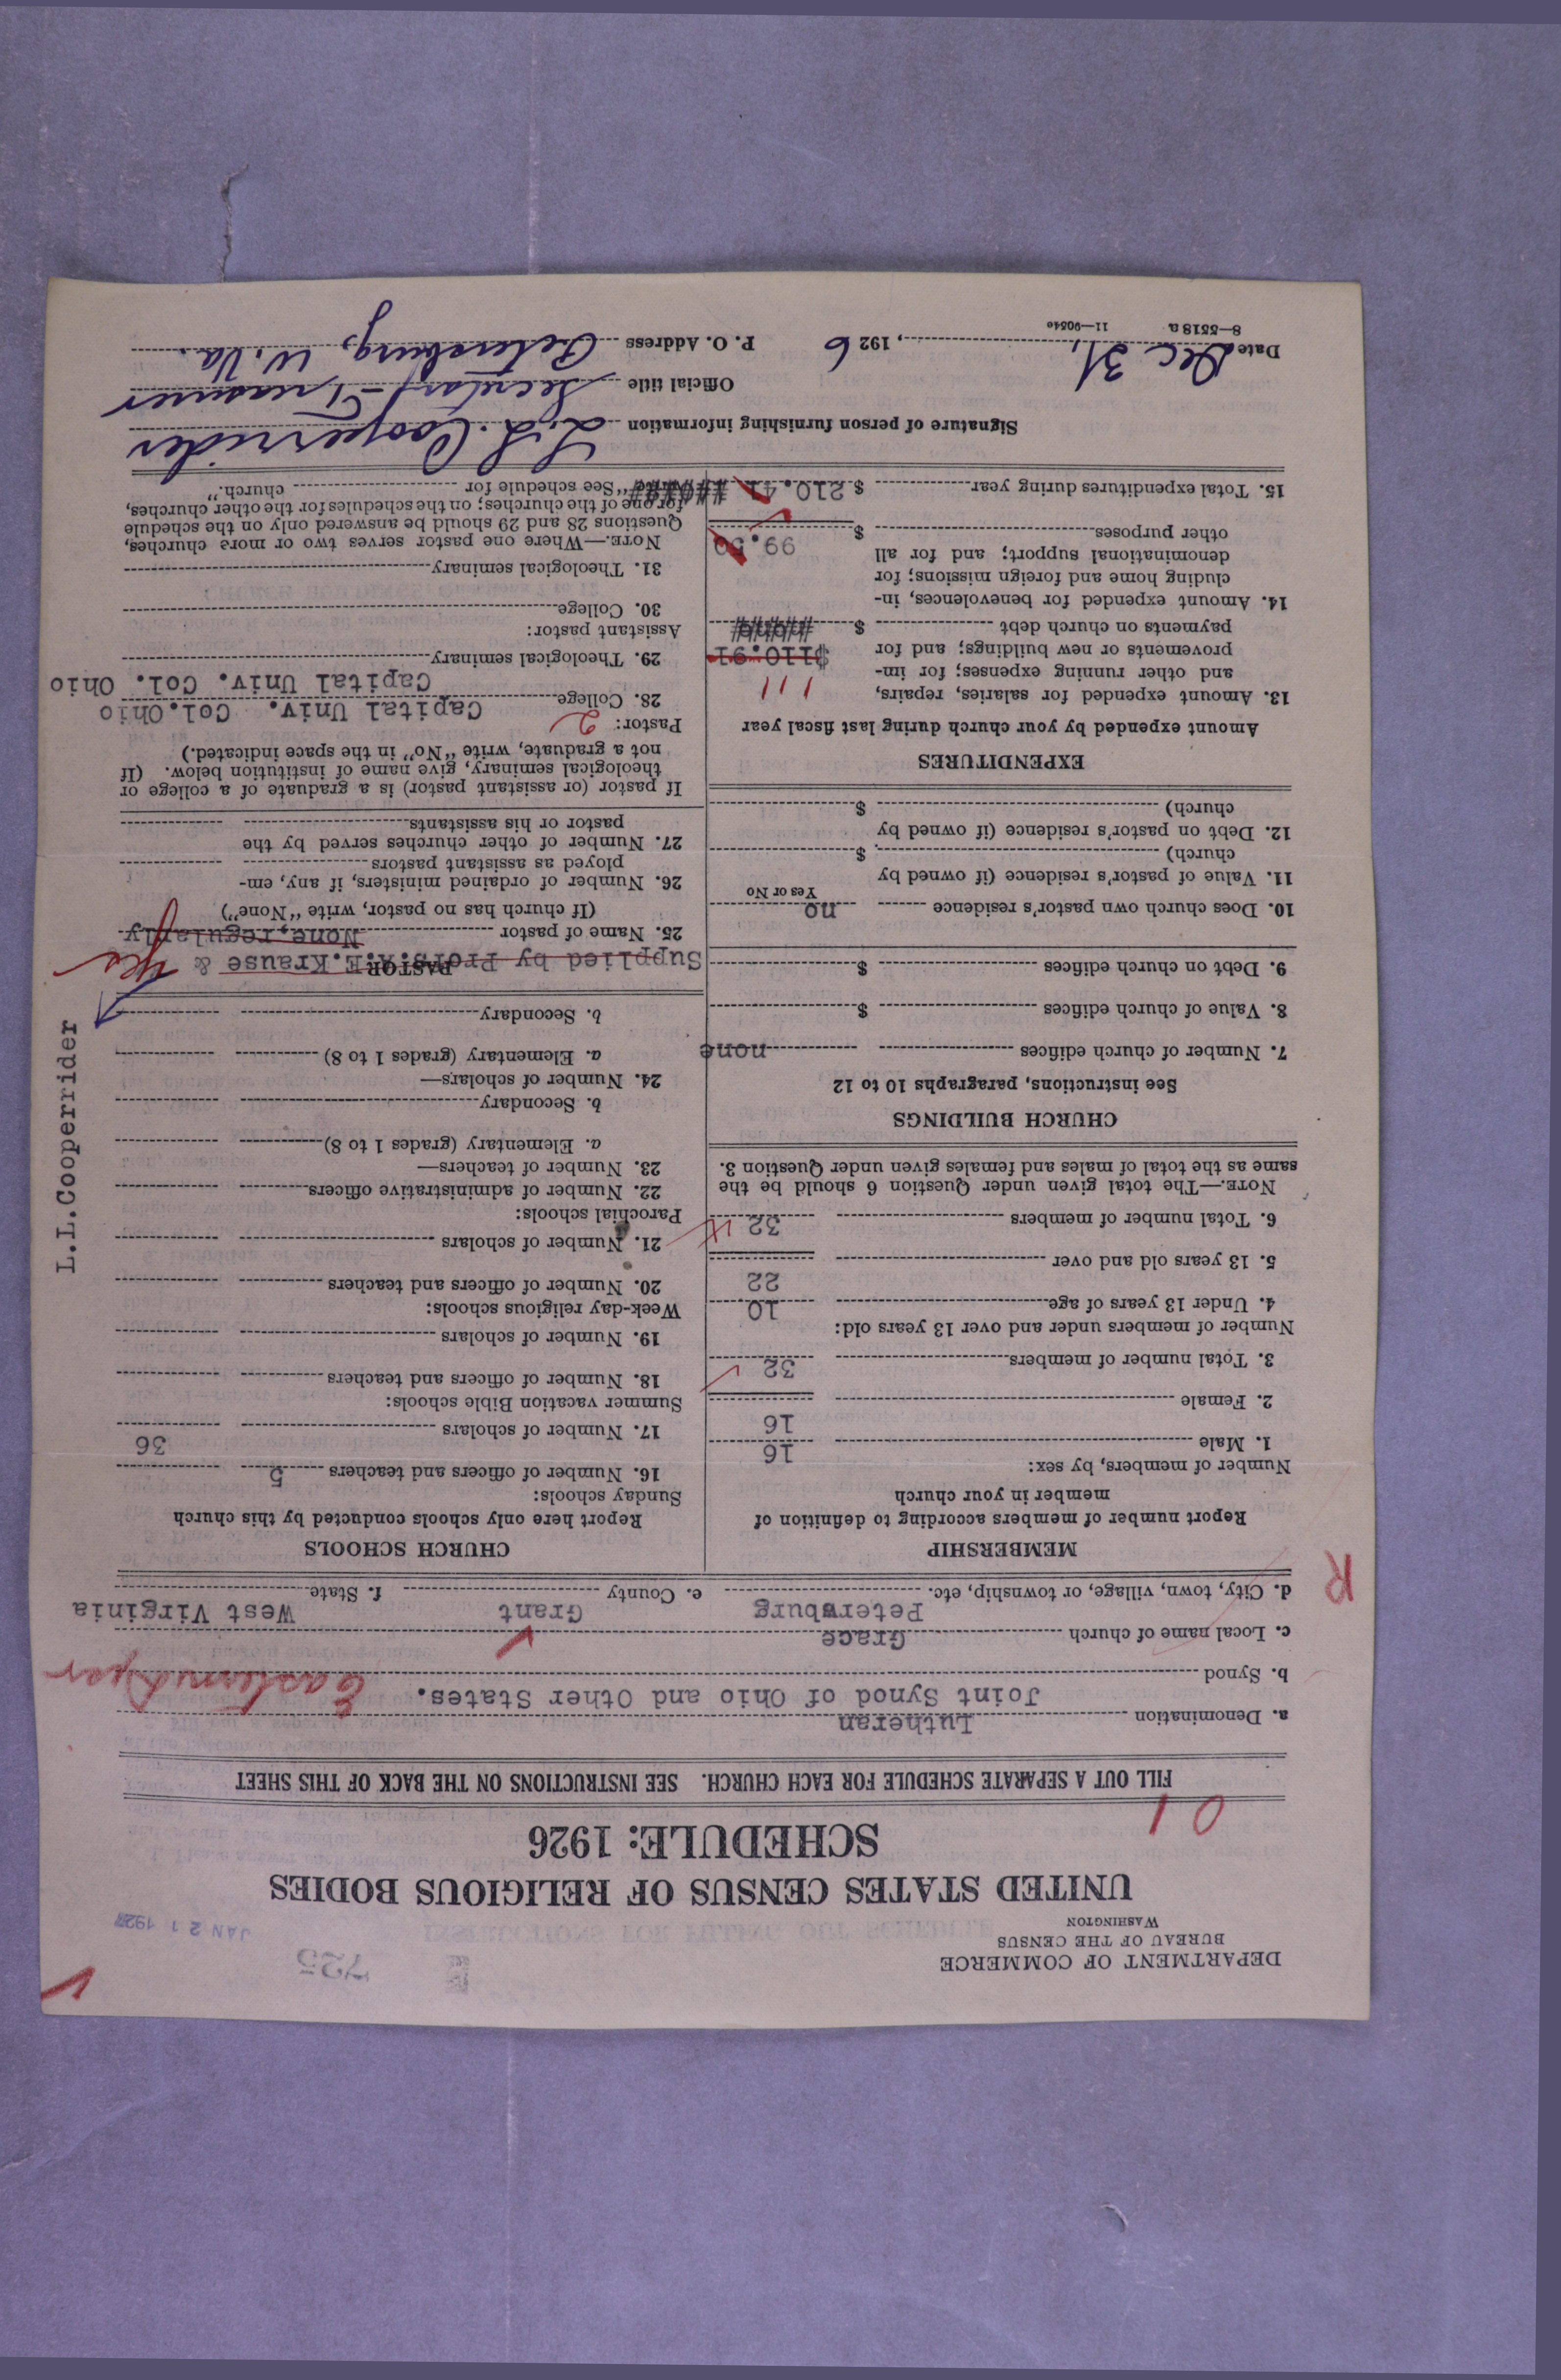 DEPARTMENT OF COMMERCE
BUREAU OF THE CENSUS
WASHINGTON
725
JAN 21 1927
UNITED STATES CENSUS OF RELIGIOUS BODIES
SCHEDULE: 1926
01
FILL OUT A SEPARATE SCHEDULE FOR EACH CHURCH. SEE INSTRUCTIONS ON THE BACK OF THIS SHEET
a. Denomination Lutheran
Joint Synod of Ohio and Other States.
b. Synod Eastern
c. Local name of church Grace
d. City, town, village, or township, etc. Petersburg e. County Grant f. State West Virginia
R
MEMBERSHIP
Report number of members according to definition of
member in your church
Number of members, by sex:
1. Male 16
2. Female 16
3. Total number of members 32
Number of members under and over 13 years old:
4. Under 13 years of age 10
5. 13 years old and over 22
6. Total number of members 32
NOTE.—The total given under Question 6 should be the
same as the total of males and females given under Question 3.
CHURCH BUILDINGS
See instructions, paragraphs 10 to 12
7. Number of church edifices none
8. Value of church edifices $
9. Debt on church edifices $
10. Does church own pastor's residence no
Yes or No
11. Value of pastor's residence (if owned by
church) $
12. Debt on pastor's residence (if owned by
church) $
EXPENDITURES
Amount expended by your church during last fiscal year
13. Amount expended for salaries, repairs, 111
and other running expenses; for im-
provements or new buildings; and for $110.91
payments on church debt $
14. Amount expended for benevolences, in-
cluding home and foreign missions; for
denominational support; and for all 99.50
other purposes $
15. Total expenditures during year $ 210.41
CHURCH SCHOOLS
Report here only schools conducted by this church
Sunday schools:
16. Number of officers and teachers 5
17. Number of scholars 36
Summer vacation Bible schools:
18. Number of officers and teachers
19. Number of scholars
Week-day religious schools:
20. Number of officers and teachers
21. Number of scholars
Parochial schools:
22. Number of administrative officers
23. Number of teachers—
a. Elementary (grades 1 to 8)
b. Secondary
24. Number of scholars—
a. Elementary (grades 1 to 8)
b. Secondary
L.L.Cooperrider
PASTOR
Supplied by Profs.A.E.Krause & yes
25. Name of pastor None,regularly
(If church has no pastor, write "None")
26. Number of ordained ministers, if any, em-
ployed as assistant pastors
27. Number of other churches served by the
pastor or his assistants
If pastor (or assistant pastor) is a graduate of a college or
theological seminary, give name of institution below. (If
not a graduate, write "No" in the space indicated.)
Pastor: 2
28. College Capital Univ. Col.Ohio
29. Theological seminary Capital Univ. Col. Ohio
Assistant pastor:
30. College
31. Theological seminary
NOTE.—Where one pastor serves two or more churches,
Questions 28 and 29 should be answered only on the schedule
for one of the churches; on the schedules for the other churches,
write "See schedule for church."
Signature of person furnishing information L.L. Cooperrider
Official title Secretary-Treasurer
Date Dec 31, 1926 P. O. Address Petersburg, W.Va.
8—5518 a 11—9054c